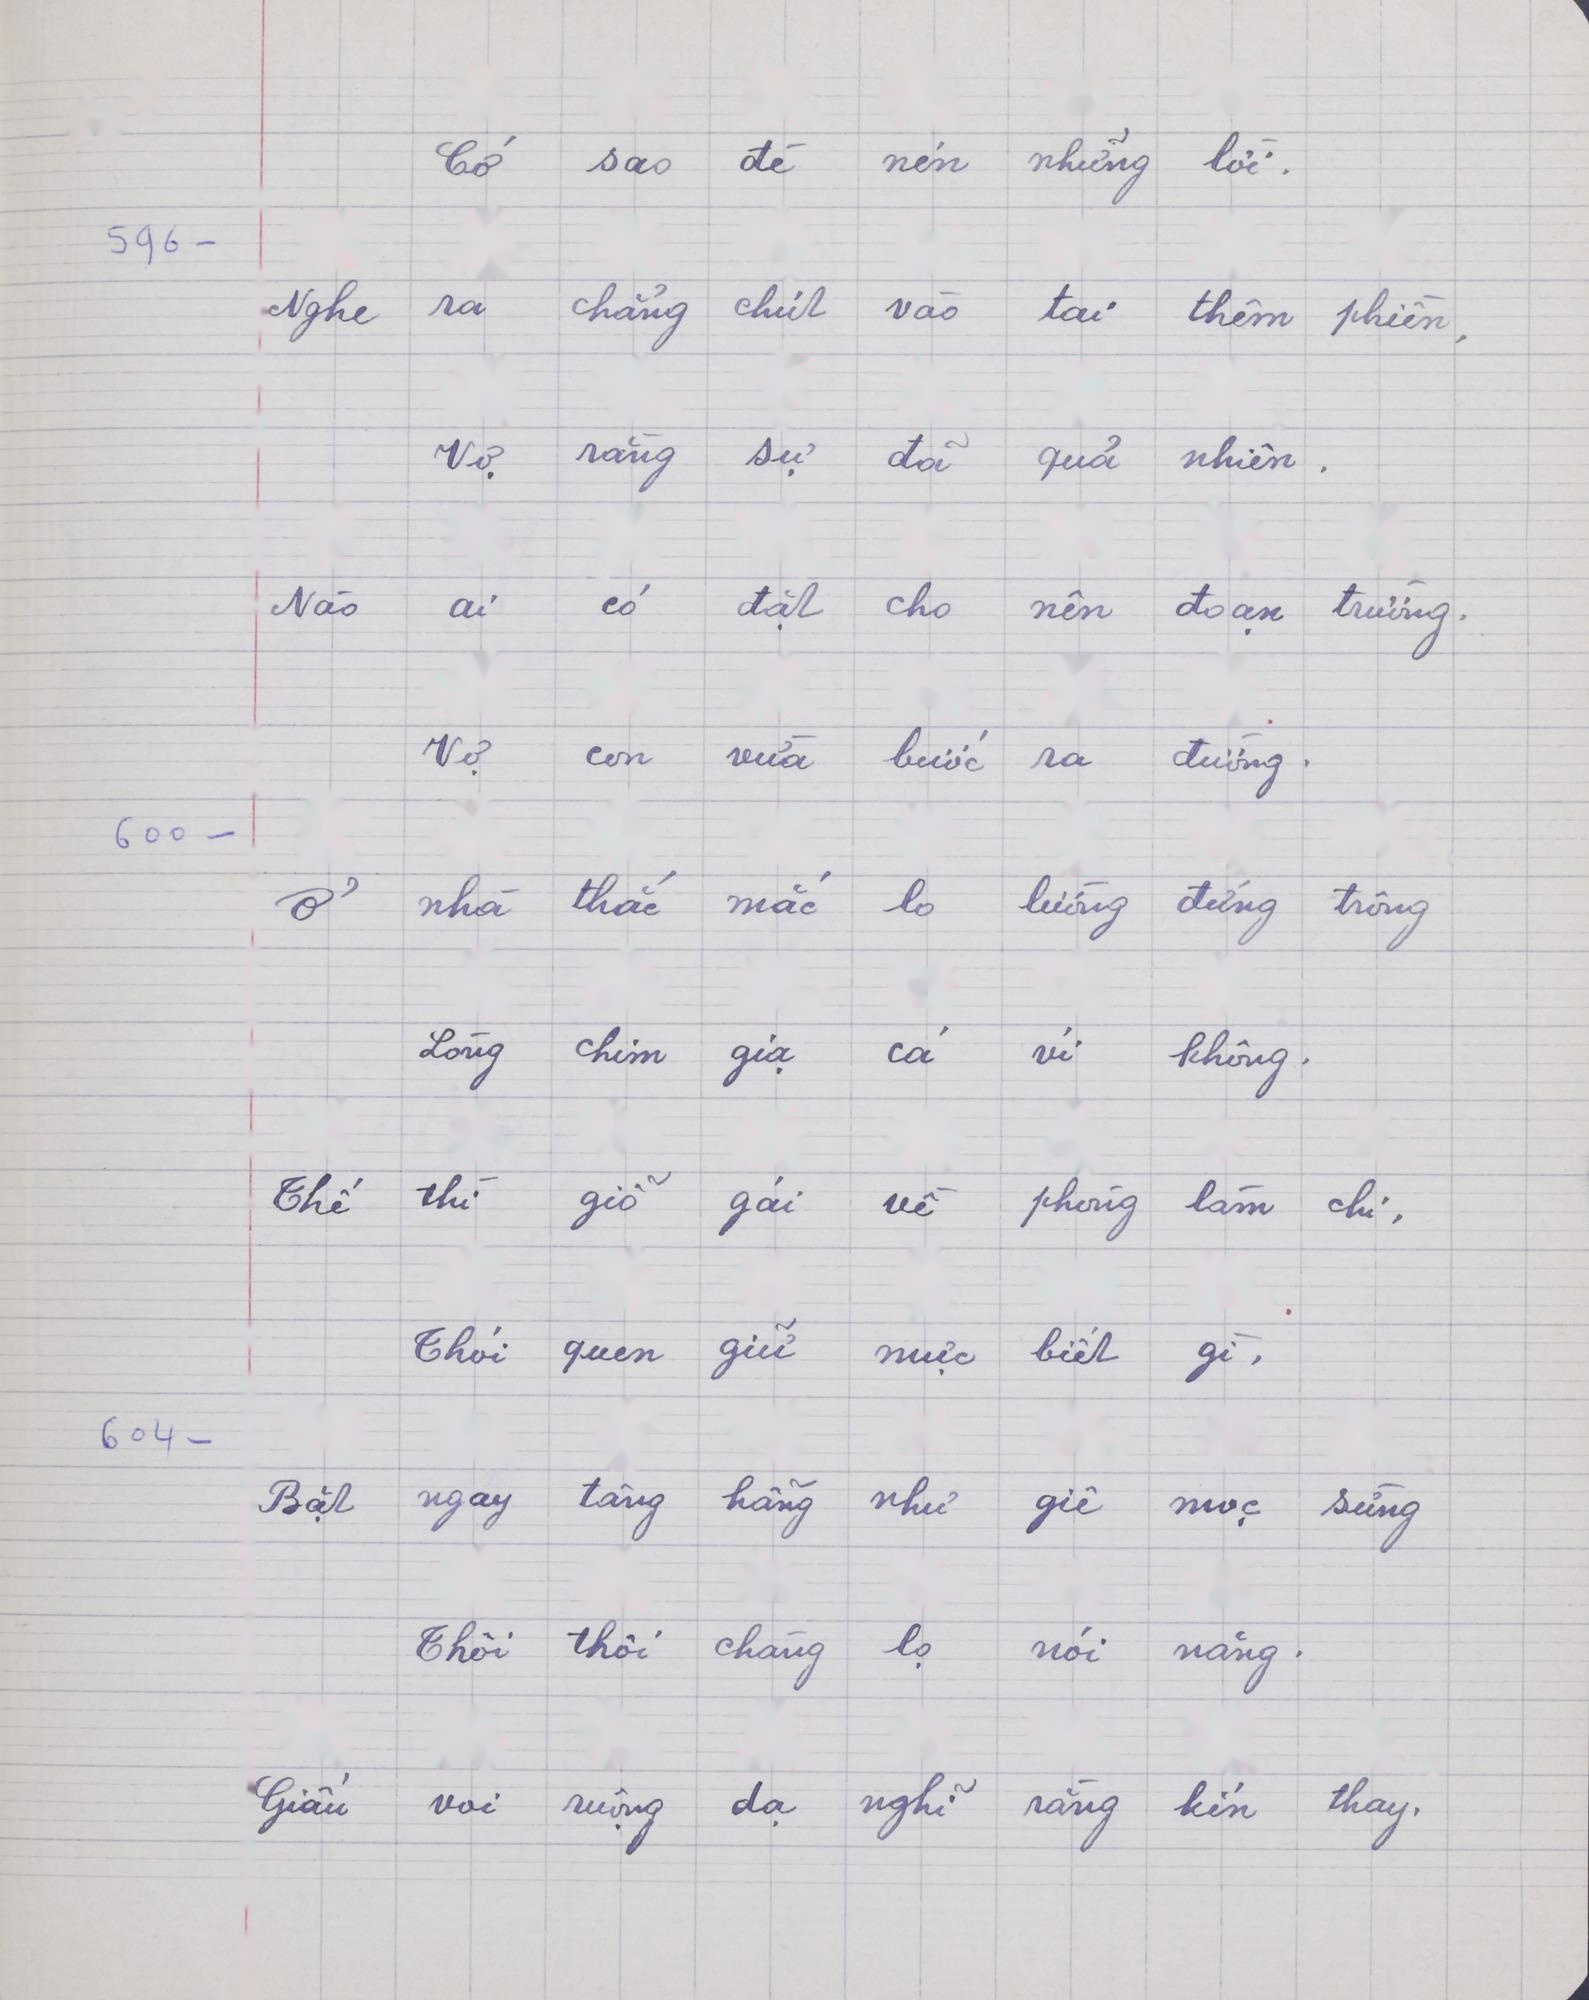 Cớ sao để nên những lời.
596-
Nghe ra chẳng chút vào tai thêm phiền,
Vợ rằng sự đã quả nhiên.
Nào ai có đặt cho nên đoạn trường.
Vợ con vừa bước ra đường.
600-
Ở nhà thắc mắc lo lường đứng trông
Lòng chim giạ cá ví không.
Thế thì giỗ gái về phòng làm chi,
Thói quen giữ mực biết gì,
604-
Bặt ngay tâng hẫng như giê mọc sừng
Thôi thôi chăng lọ nói năng.
Giấu voi ruộng dạ nghĩ rằng kín thay.